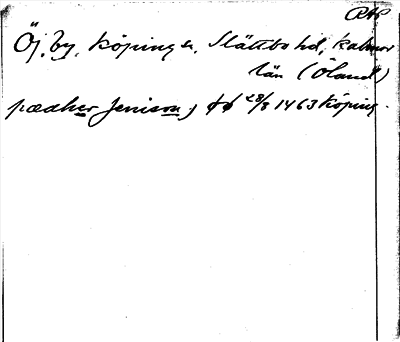 Öj, by, Köping sn. Slättbo hd, Kalmar
län (Öland)
pædher Jenison, 28/8 1463 Köping.